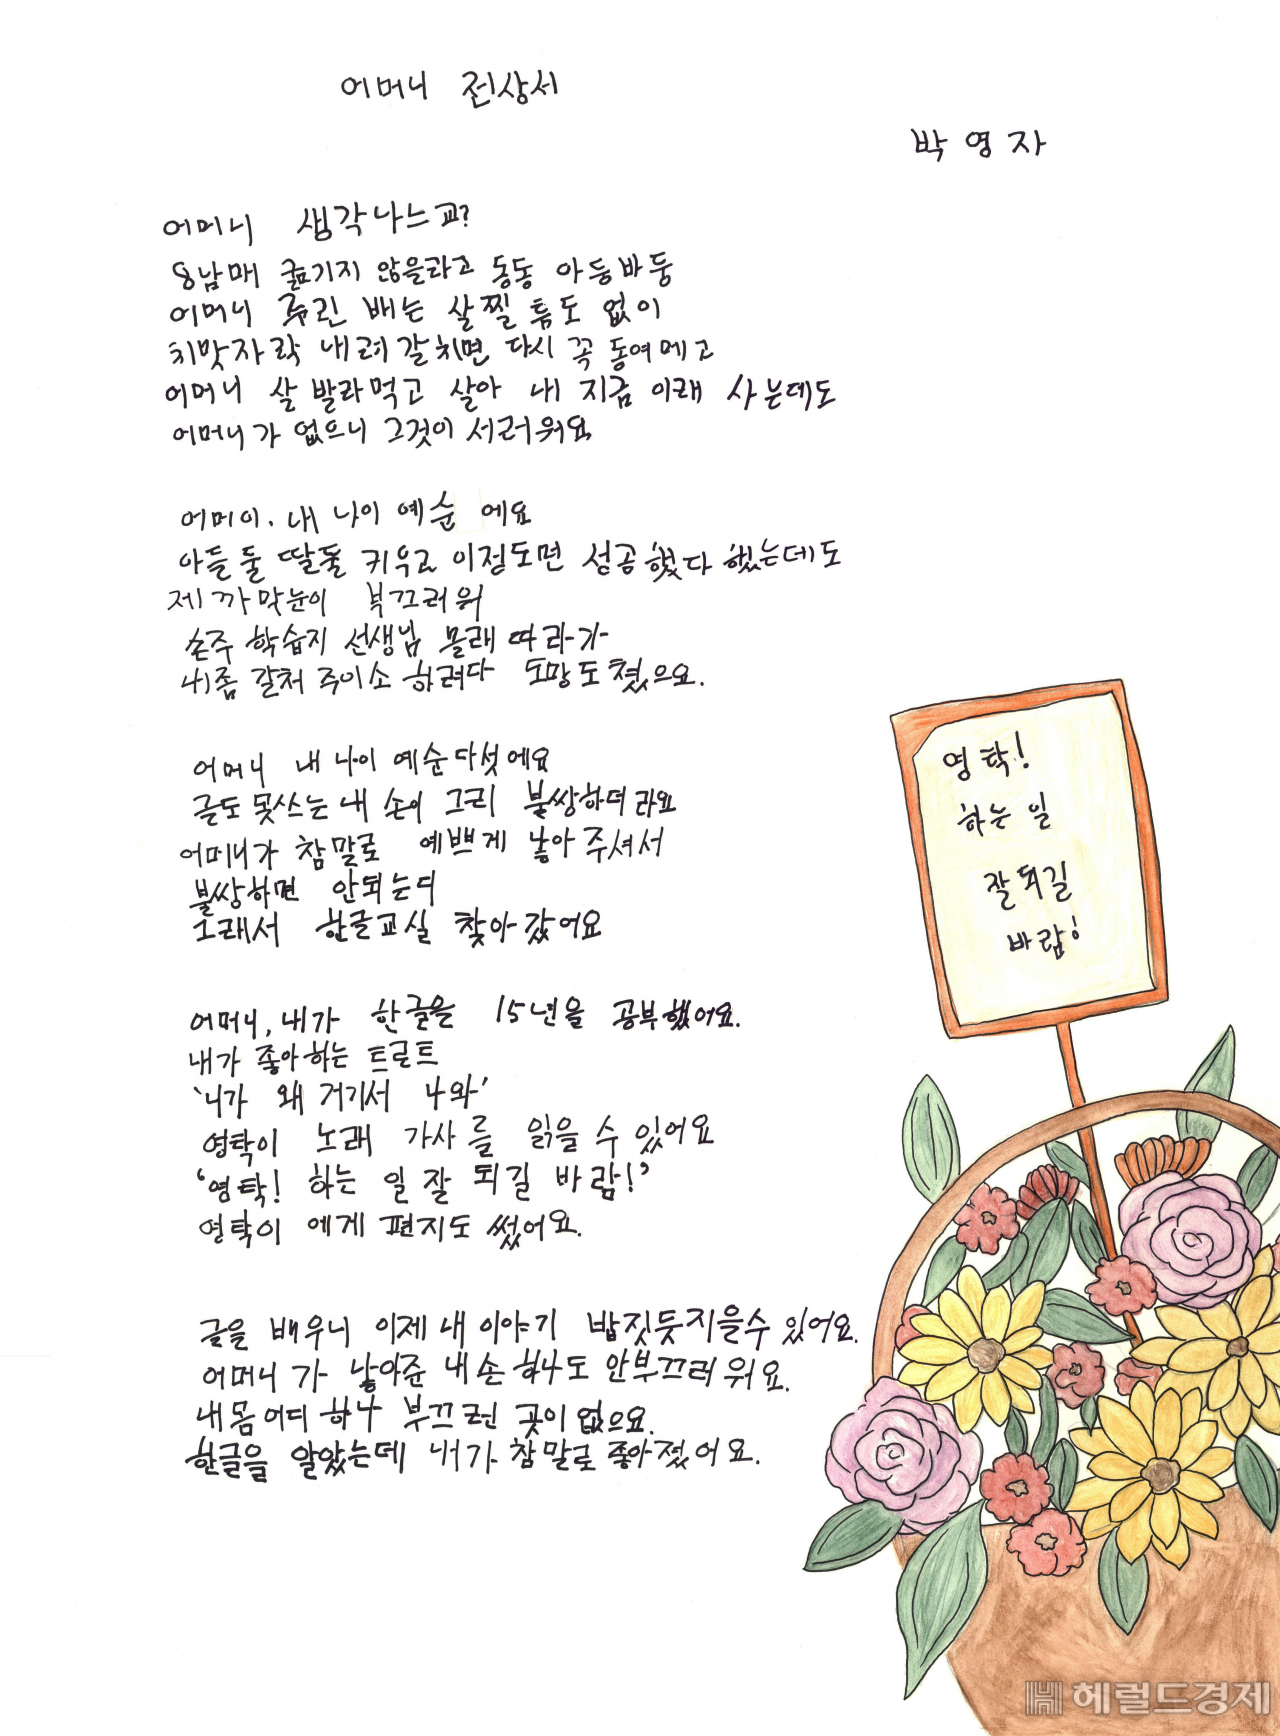 어머니 전상서
박영자
어머니 생각나는교?
8남매 굶기지 않을라고 동동 아등바둥
어머니 주린 배는 살찔 틈도 없이
치맛자락 내려 갈치면 다시 꼭 동여메고
어머니 살 발라먹고 살아 내 지금 이래 사는데도
어머니가 없으니 그것이 서러워요
어머이. 내 나이 예순 에요
아들 둘 딸둘 키우고 이정도면 성공했다 했는데도
제 까막눈이 부끄러워
손주 학습지 선생님 몰래 따라가
내좀 갈처 주이소 하려다 도망도쳤으요.
어머니 내 나이 예순다섯에요
글도 못쓰는 내 손이 그리 불쌍하더라요
어머니가 참말로 예쁘게 낳아 주셔서
불쌍하면 안되는디
그래서 한글교실 찾아갔어요
어머니, 내가 한글을 15년을 공부했어요.
내가 좋아하는 트로트
'니가 왜 거기서 나와'
영탁이 노래 가사를 읽을 수 있어요
'영탁! 하는 일 잘 되길 바람!'
영탁이 에게 편지도 썼어요.
글을 배우니 이제 내 이야기 밥짓듯지을수 있어요.
어머니 가 낳아준 내손 하나도 안부끄러워요.
내몸 어디 하나 부끄런 곳이 없으요.
한글을 알았는데 내가 참말로 좋아졌어요.
영탁!
하는 일
잘되길
바람!
헤럴드경제